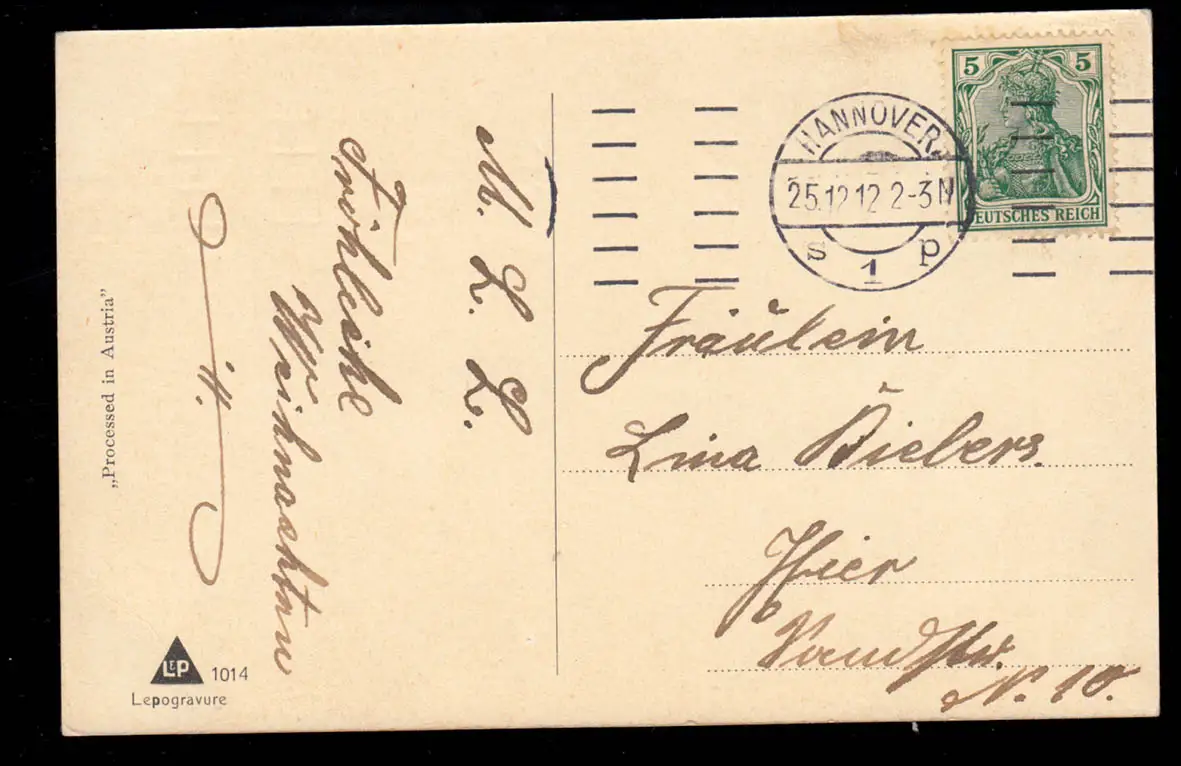 M. L. L.
Fröhliche
Weihnachten
„Processed in Austria”
LEP 1014
Lepogravure
HANNOVER.
25.12.12 2-3N
S 1 p
5 5
DEUTSCHES REICH
Fräulein
Lina Bielers.
Hier
N. 10.